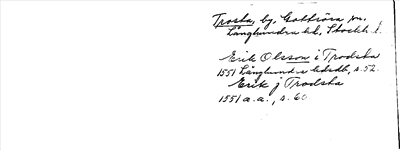 Troska, by, Gottröra sn.
Långhundra hd, Stockh. l.
Erik Olsson i Trodska
1551 Långhund-a hdsdb, s. 52.
Erik j Trodska
1551 a.a., s. 60